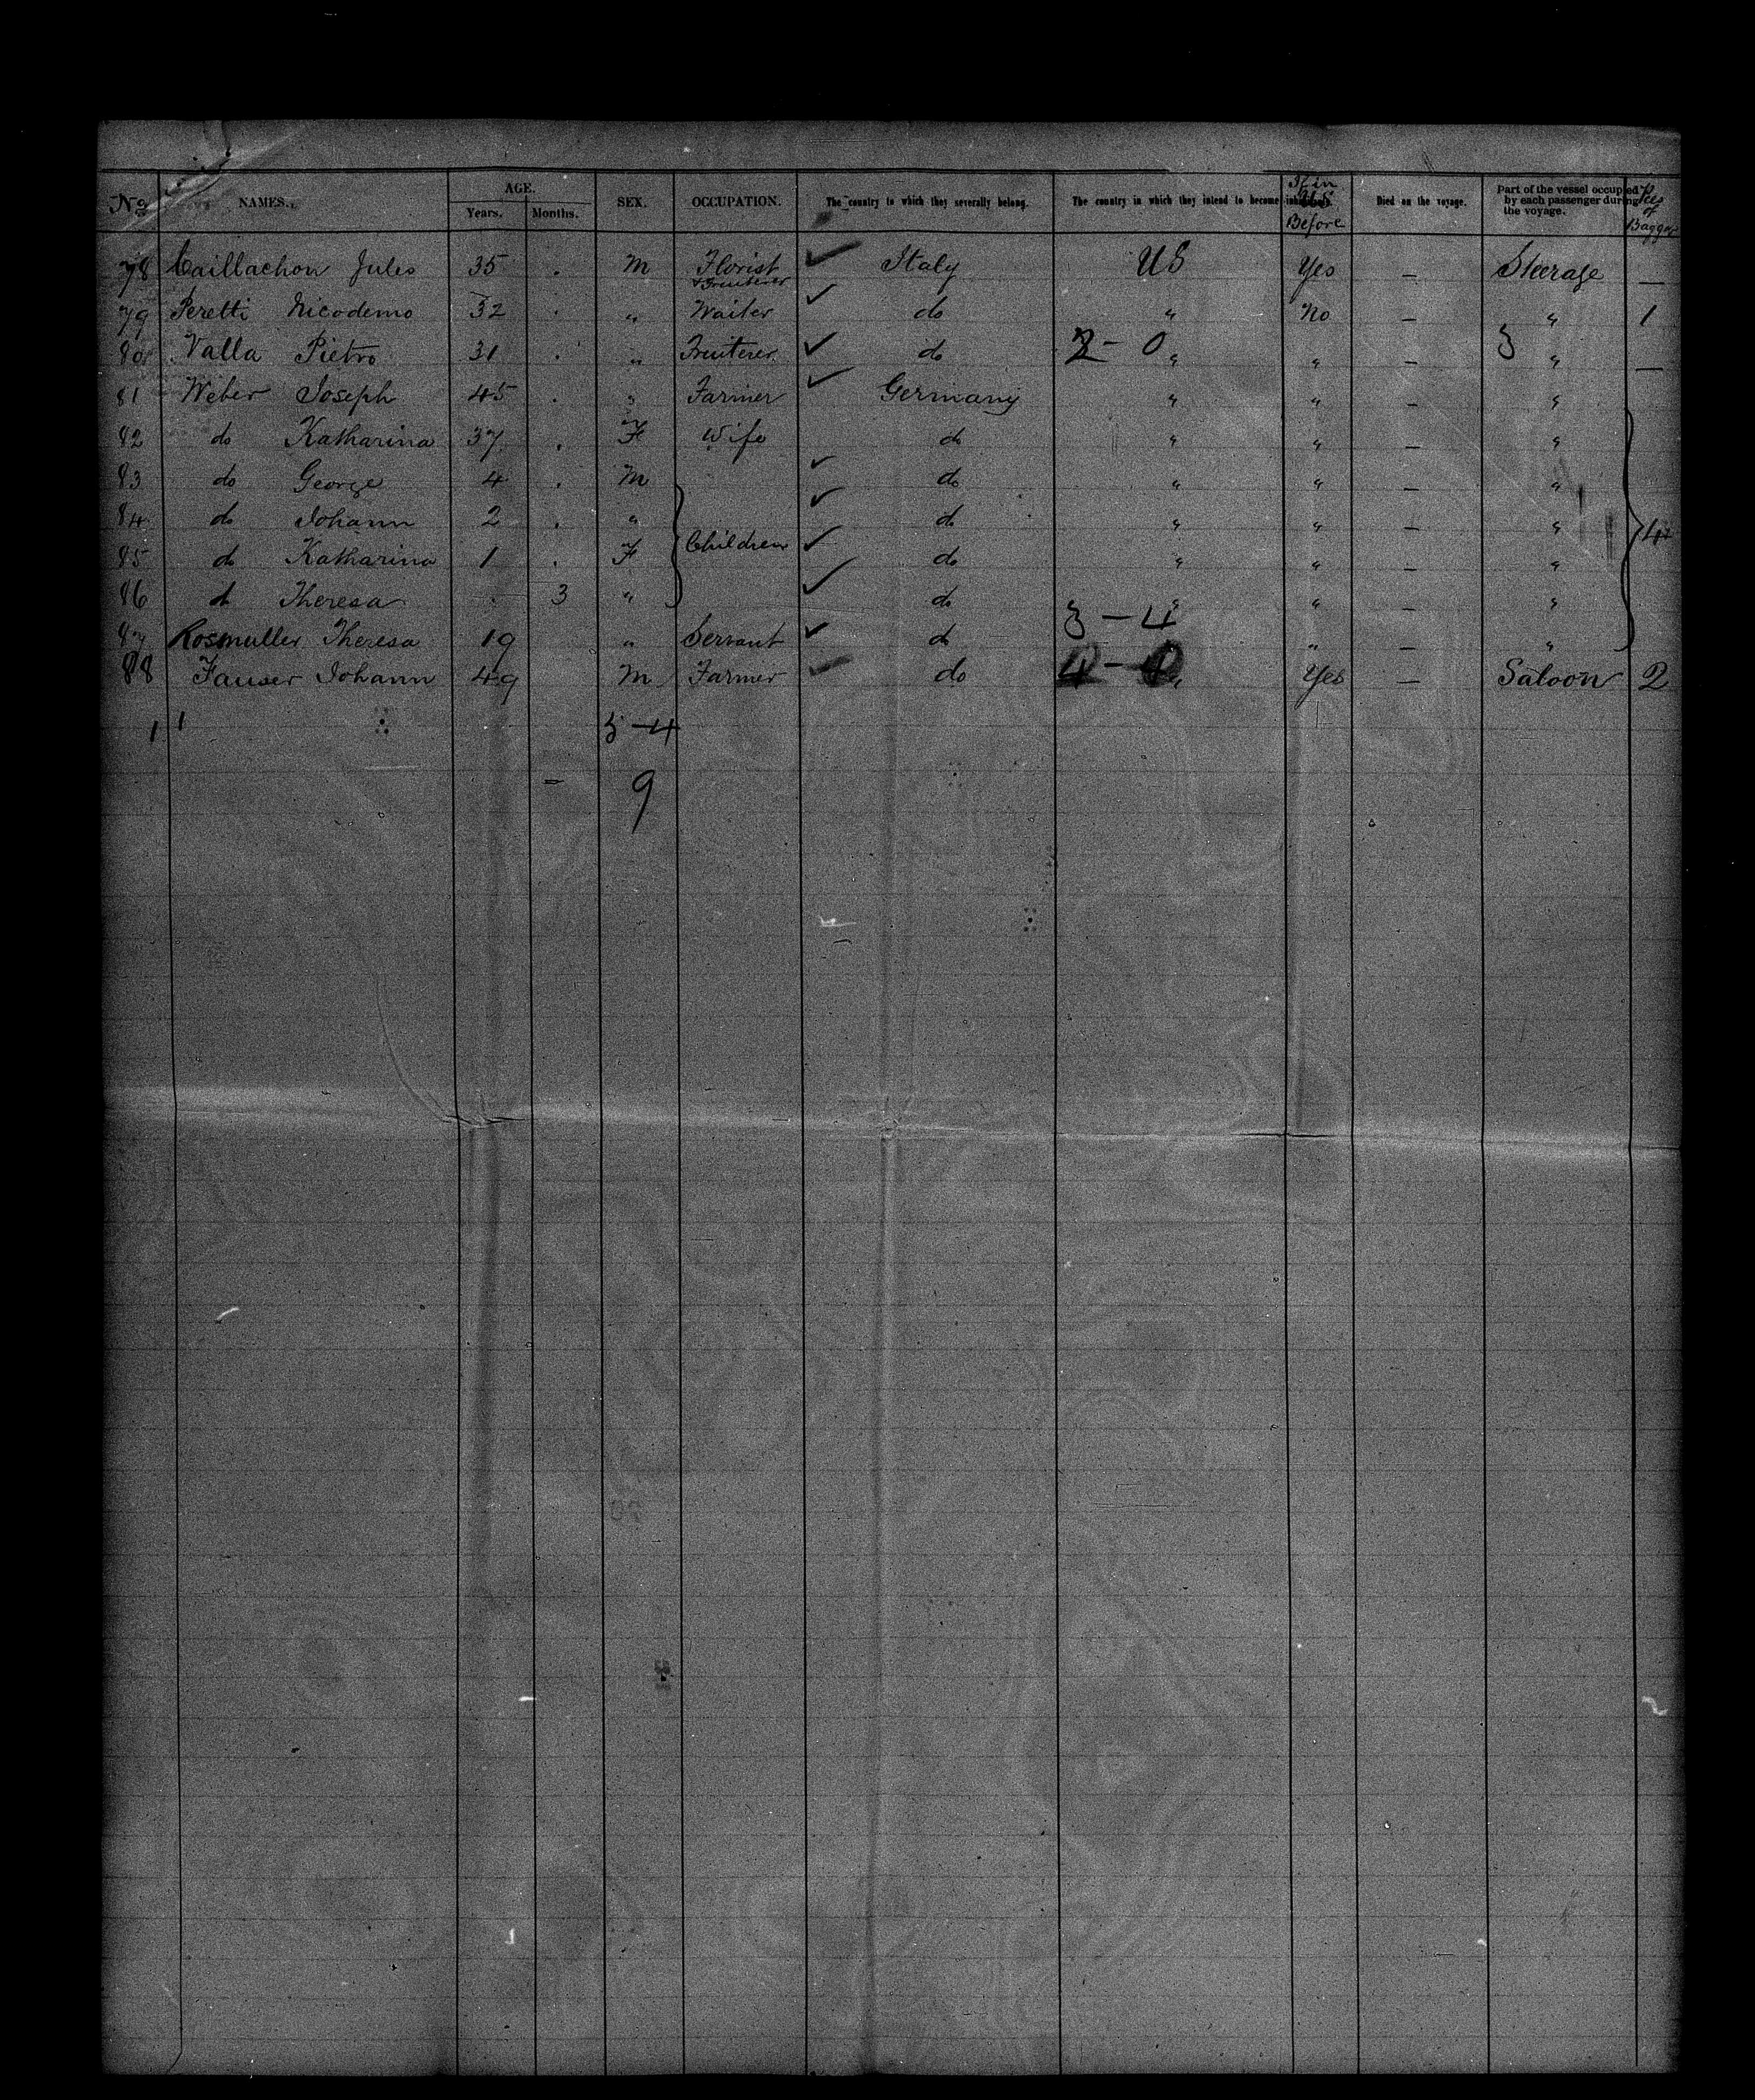 No NAMES. AGE. Years. Months. SEX. OCCUPATION. The country to which they severally belong. The country in which they intend to become inhabitants. If in U.S. Before Died on the voyage. Part of the vessel occupied by each passenger during the voyage. Pces of Baggage
78 Caillachon Jules 35 . M Florist Italy US Yes — Steerage —
& Fruiterer
79 Peretti Nicodemo 32 . " Waiter do " No — " 1
80 Valla Pietro 31 . " Fruiterer do 2 - 0 " " — 3 " —
81 Weber Joseph 45 . " Farmer Germany " " — "
82 do Katharina 37 . F Wife do " " — "
83 do George 4 . M do " " — "
84 do Johann 2 . " do " " — " 4
Children
85 do Katharina 1 . F do " " — "
86 do Theresa . 3 " do " " — "
3 - 4
87 Rosmuller Theresa 19 " Servant do " — "
88 Fauser Johann 49 M Farmer do " Yes — Saloon 2
1 1 5 - 4
9